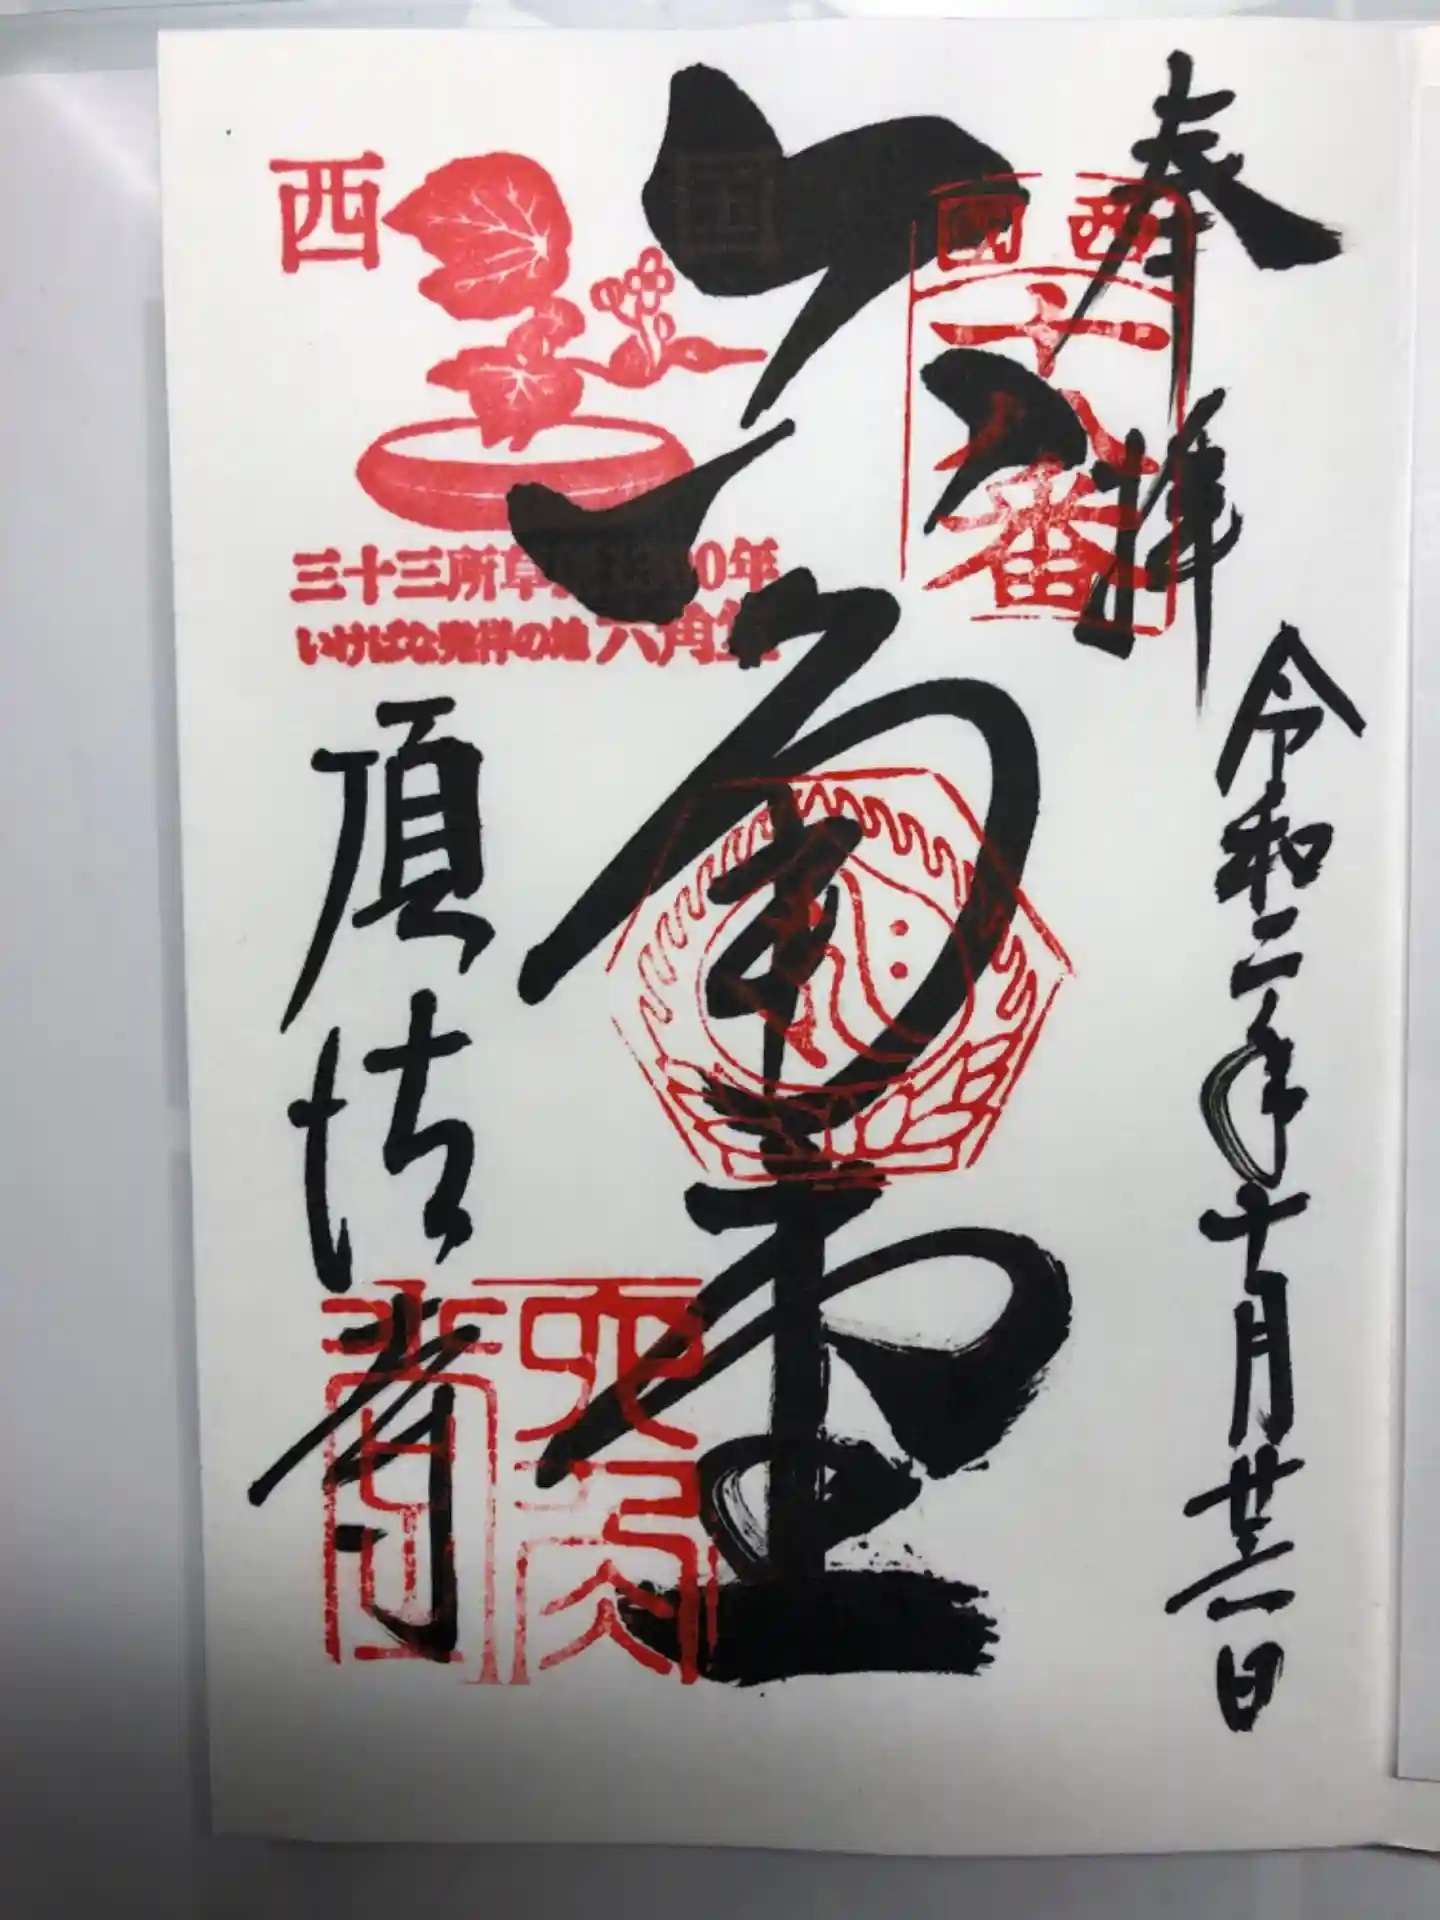 奉拝
令和二年十月廿一日
西国
十八番
六角堂
西国
三十三所草創1300年
いけばな発祥の地 六角堂
頂法寺